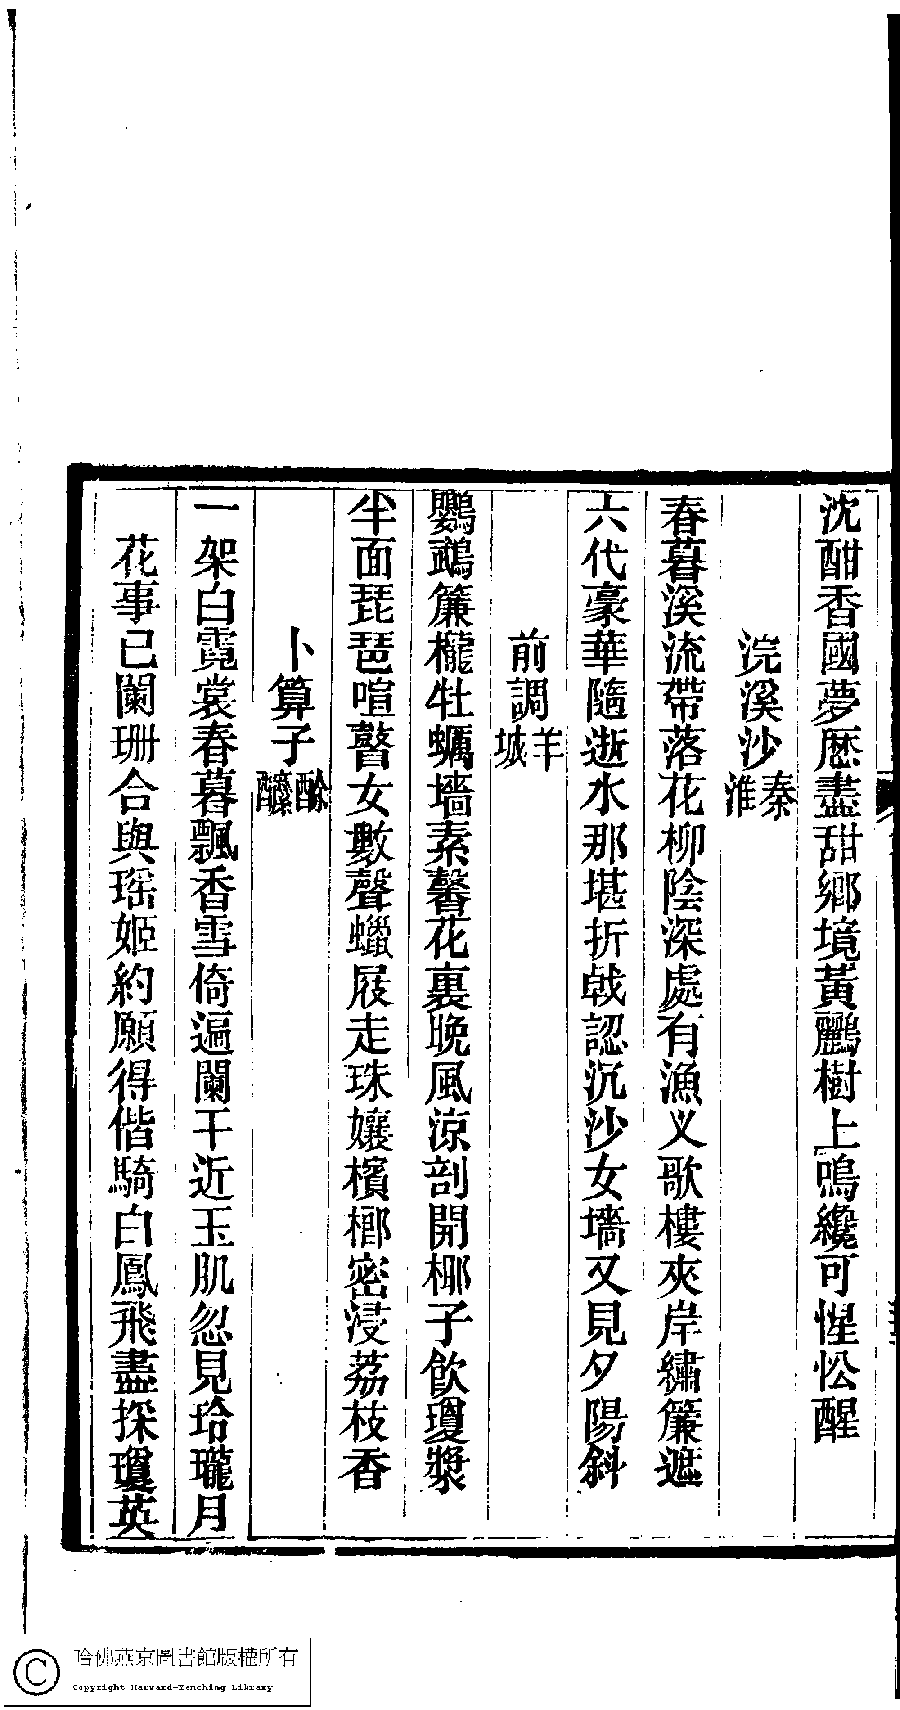 沈酣香國夢歷盡甜鄉境黃鸝樹上鳴纔可惺忪醒
浣溪沙秦淮
春暮溪流帶落花柳陰深處有漁义歌樓夾岸繡簾遮
六代豪華隨逝水那堪折戟認沉沙女墻又見夕陽斜
前調羊城
鸚鵡簾櫳牡蠣墻素馨花裏晚風涼剖開椰子飲瓊漿
半面琵琶喧瞽女數聲蠟屐走珠孃檳榔密浸荔枝香
卜算子酴醾
一架白霓裳春暮飄香雪倚遍闌干近玉肌忽見玲瓏月
花事已闌珊合與瑶姬約願得偕騎白鳳飛盡探瓊英
哈佛燕京圖書館版權所有
Copyright Harvard-Yenching Library